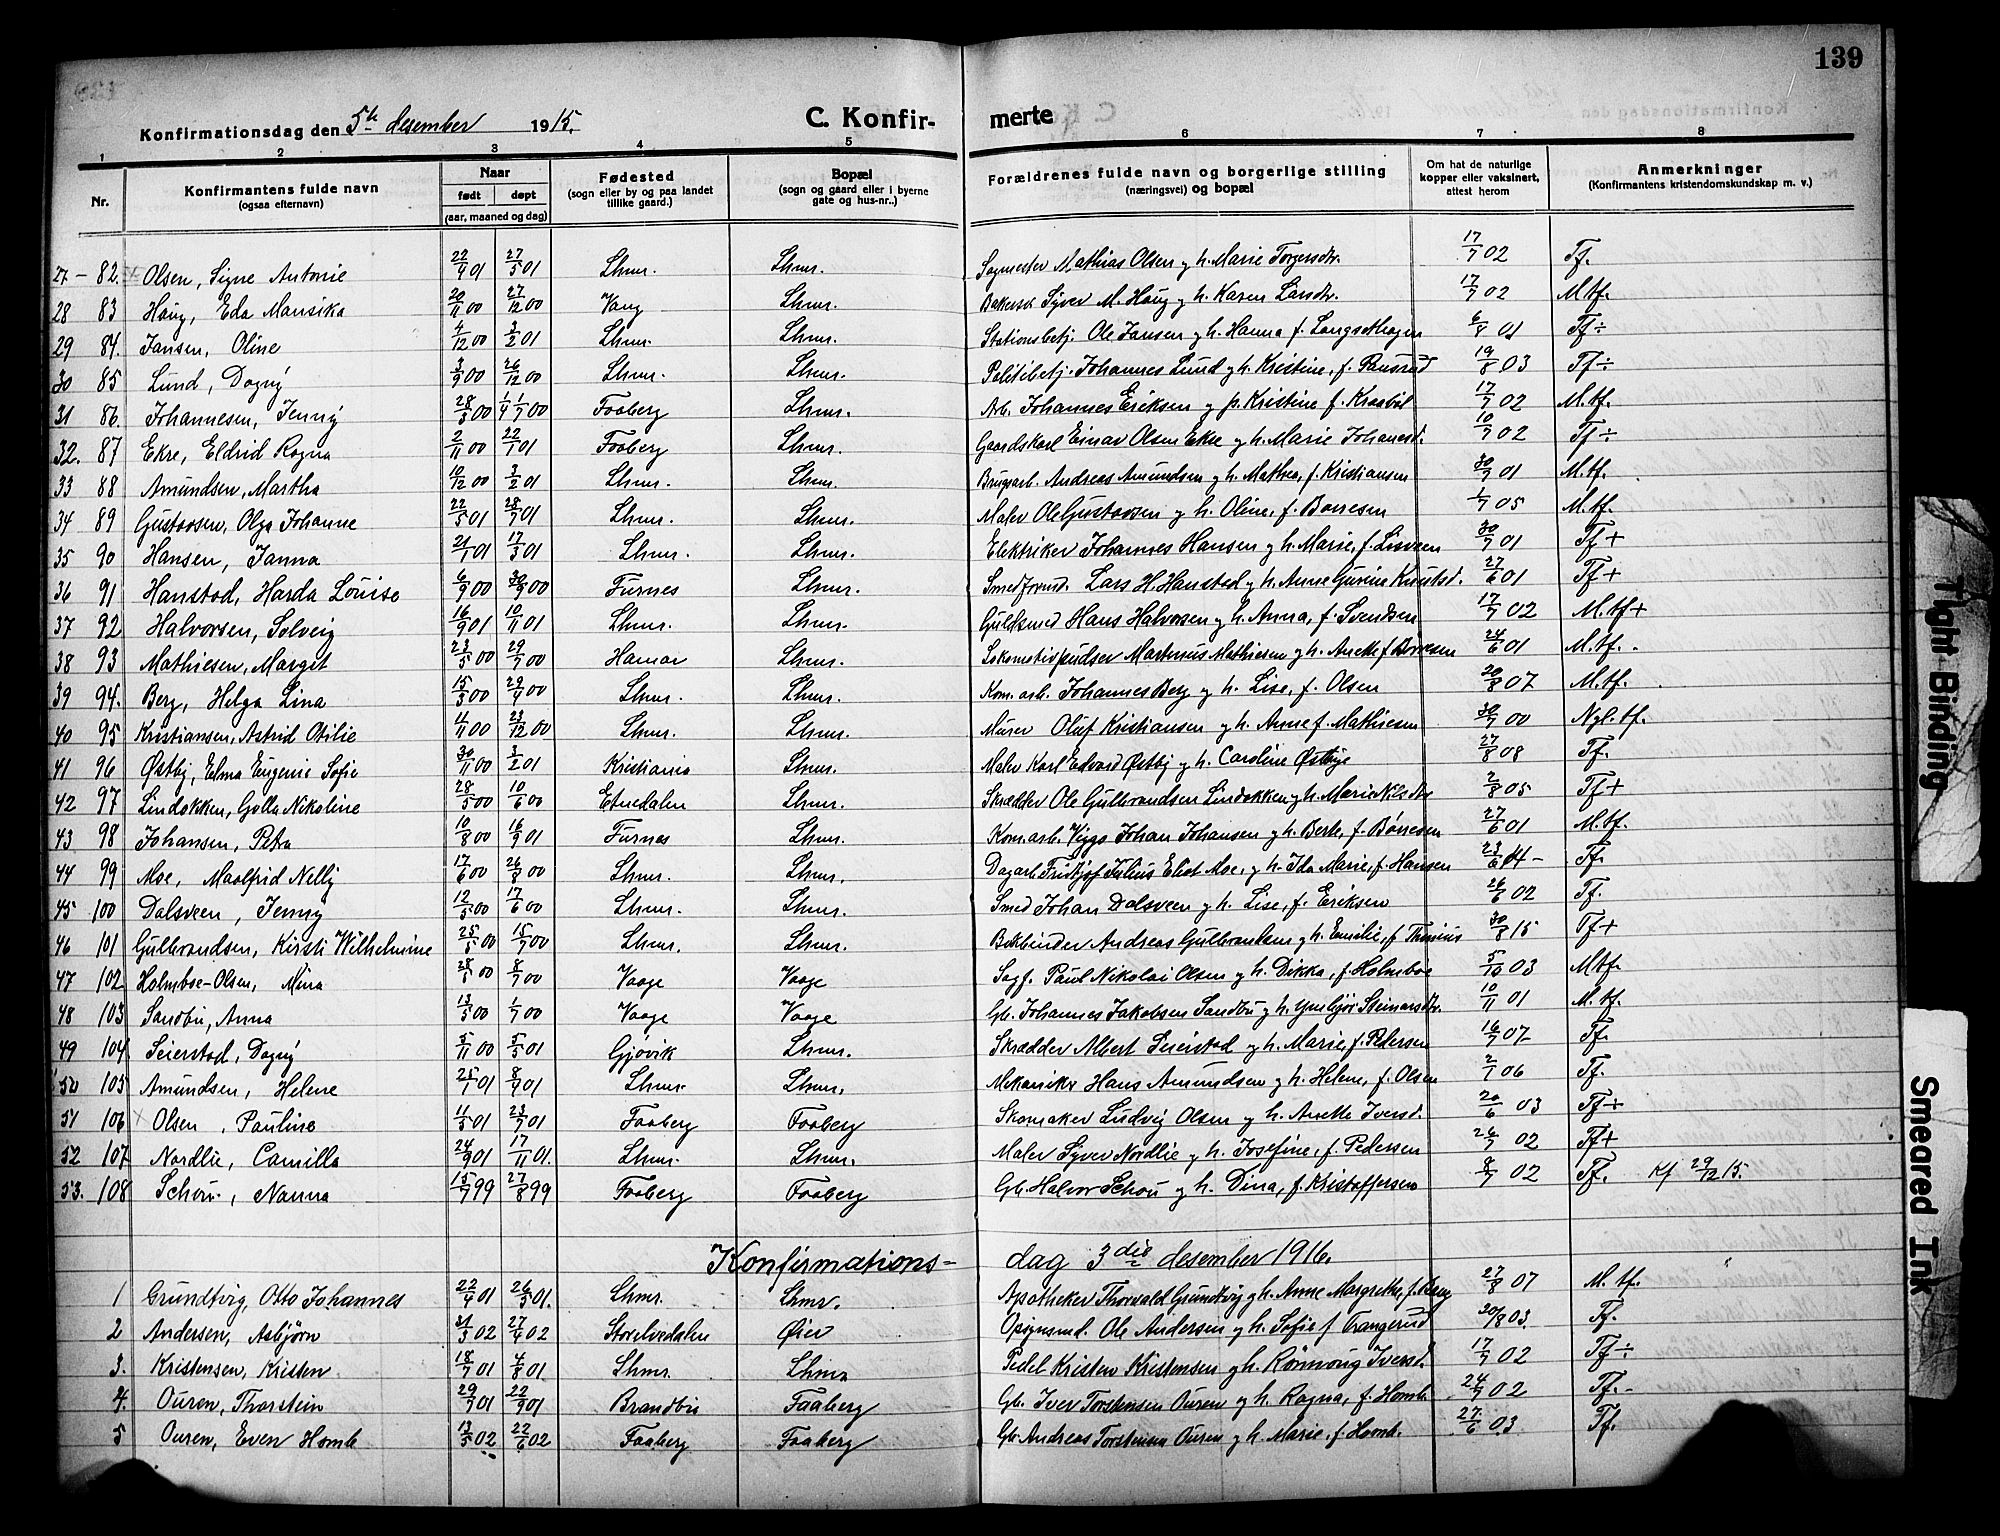 139
Konfirmationsdag den 5te desember 1915. C. Konfir- merte
1 2 3 4 5 6 7 8
Nr. Konfirmantens fulde navn (ogsaa efternavn) Naar født døpt (aar, maaned og dag) Fødested (sogn eller by og paa landet tillike gaard.) Bopæl (sogn og gaard eller i byerne gate og hus-nr..) Forældrenes fulde navn og borgerlige stilling (næringsvei) og bopæl Om hat de naturlige kopper eller vaksinert, attest herom Anmerkninger (Konfirmantens kristendomskundskap m. v.)
27 - 82. Olsen, Signe Antonie 22/4 01 27/5 01 Lhmr. Lhmr. Sagmester Mathias Olsen og h. Marie Torgersdtr. 17/7 02 Tf.
28 83 Haug, Eda Mansika 20/11 00 27/12 00 Vang Lhmr. Bakersv. Syver M. Haug og h. Karen Larsdtr. 17/7 02 M.tf.
29 84. Jansen, Oline 4/12 00 3/2 01 Lhmr. Lhmr. Stationsbetj. Ole Jansen og h. Hanna f. Langsethagen 6/8 01 Tf÷
30 85 Lund, Dagny 3/9 00 26/12 00 Lhmr. Lhmr. Politibetj. Johannes Lund og h. Kristine, f. Pausrud 19/8 03 Tf÷
31 86. Johannesen, Jenny 28/3 00 1/4 1/7 00 Faaberg Lhmr. Arb. Johannes Eriksen og p. Kristine f. Kraabøl 17/7 02 M.tf.
32. 87 Ekre, Eldrid Ragna 2/11 00 22/1 01 Faaberg Lhmr. Gaardskarl Einar Olsen Ekre og h. Marie Johanesd. 10/7 02 Tf÷
33 88 Amundsen, Martha 10/12 00 3/2 01 Lhmr. Lhmr. Brugsarb. Andreas Amundsen og h. Mathea, f. Kristiansen 30/7 01 M.tf.
34 89 Gustavsen, Olga Johanne 22/5 01 28/7 01 Lhmr. Lhmr. Maler Ole Gustavsen og h. Oline, f. Borresen 1/7 05 M.tf.
35 90 Hansen, Janna 21/1 01 17/3 01 Lhmr. Lhmr. Elektriker Johannes Hansen og h. Marie, f. Lisveen 30/7 01 Tf+
36 91 Hanstad, Harda Louise 6/9 00 30/9 00 Furnes Lhmr. Smedformd. Lars H. Hanstad og h. Anne Gurine Knutsd. 27/6 01 Tf+
37 92 Halvorsen, Solveig 16/9 01 10/11 01 Lhmr. Lhmr. Guldsmed Hans Halvorsen og h. Anna, f. Svendsen 17/7 02 M.tf+
38 93 Mathiesen, Margit 23/5 00 29/7 00 Hamar Lhmr. Lokomotivpudser Martinus Mathiesen og h. Anette f. Borresen 24/6 01 M.tf.
39 94. Berg, Helga Lina 15/3 00 29/4 00 Lhmr. Lhmr. Kom. arb. Johannes Berg og h. Lise, f. Olsen 20/8 07 M.tf.
40 95 Kristiansen, Astrid Otilie 4/11 00 23/12 00 Lhmr. Lhmr. Murer Oluf Kristiansen og h. Anne f. Mathiesen 30/7 00 Ngl. tf.
41 96 Østby, Elma Eugenie Sofie 30/11 00 3/2 01 Kristiania Lhmr. Maler Karl Edvard Østby og h. Caroline Østbye 27/8 08 Tf.
42 97 Lindøkken, Golla Nikoline 28/5 00 10/6 00 Etnedalen Lhmr. Skrædder Ole Gulbrandsen Lindøkken og h. Marie Nilsdtr 2/8 05 Tf+
43 98 Johansen, Petra 10/8 00 16/9 01 Furnes Lhmr. Kom.arb. Viggo Johan Johansen og h. Berte, f. Børresen 27/6 01 M.tf.
44 99 Moe, Maalfrid Nelly 17/6 00 26/8 00 Lhmr. Lhmr. Dagarb. Fridtjof Julius Eliot Moe, og h. Ida Marie, f. Hansen 23/6 14- Tf.
45 100 Dalsveen, Jenny 12/5 00 17/6 00 Lhmr. Lhmr. Smed Johan Dalsveen og h. Lise, f. Eriksen 26/6 02 Tf.
46 101 Gulbrandsen, Kirsti Wilhelmine 25/5 00 15/7 00 Lhmr. Lhmr. Bokbinder Andreas Gulbrandsen og h. Emilie, f. 30/8 15 Tf+
47 102 Holmboe-Olsen, Mina 28/5 00 8/7 00 Vaage Vaage Sagf. Paul Nikolai Olsen og h. Dikka, f. Holmboe 5/10 03 Mtf.
48 103 Sandbu, Anna 13/5 00 1/7 00 Vaage Vaage Gb. Johannes Jakobsen Sandbu og h. Steinarsdtr. 10/11 01 M.tf
49 104 Seierstad, Dagny 5/11 00 5/5 01 Gjøvik Lhmr. Skrædder Albert Seierstad og h. Marie, f. Pedersen 16/7 07- Tf.
50 105 Amundsen, Helene 25/7 01 8/9 01 Lhmr. Lhmr. Mekaniker Hans Amundsen og h. Helene, f. Olsen 2/7 06 Tf.
51 106 Olsen, Pauline 4/3 01 23/7 01 Faaberg Faaberg Skomaker Ludvig Olsen og h. Anette Iversd. 20/6 03 Tf+
52 107 Nordlie, Camilla 24/9 01 17/11 01. Lhmr. Lhmr. Maler Syver Nordlie og h. Josefine, f. Pedersen 26/7 02 Tf+
53. 108 Schou, Nanna 15/7 99 27/8 99 Faaberg Faaberg Gb. Halvor Schou og h. Dina, f. Kristoffersen 8/7 02 Tf. Kf 29/12 15.
Konfirmations- dag 3die desember 1916.
1 Grundtvig, Otto Johannes 22/4 01 26/5 01. Lhmr. Lhmr. Apotheker Thorvald Grundtvig og h. Anne Margrethe, f. 27/8 07 M. tf.
2 Andersen, Asbjørn 31/3 02 27/4 02 Storelvedalen Øier Opsynsmd. Ole Andersen og h. Sofie f. Trangerud 20/8 03. Tf.
3. Kristensen, Kristen 18/7 01 4/8 01 Lhmr. Lhmr Pedel Kristen Kristensen og h. Rønnoug Iversd. 17/7 02 Tf÷
4. Ouren, Thorstein 29/7 01 22/9 01 Brandbu Faaberg Gb. Iver Torstensen Ouren og h. Ragna, f. Homb. 24/7 02 Tf.-
5 Ouren, Even Homb 13/5 02 22/6 02 Faaberg Faaberg Gb. Andreas Torstensen Ouren og h. Marie, f. Homb. 27/6 03. Tf.
Tight Binding
Smeared Ink